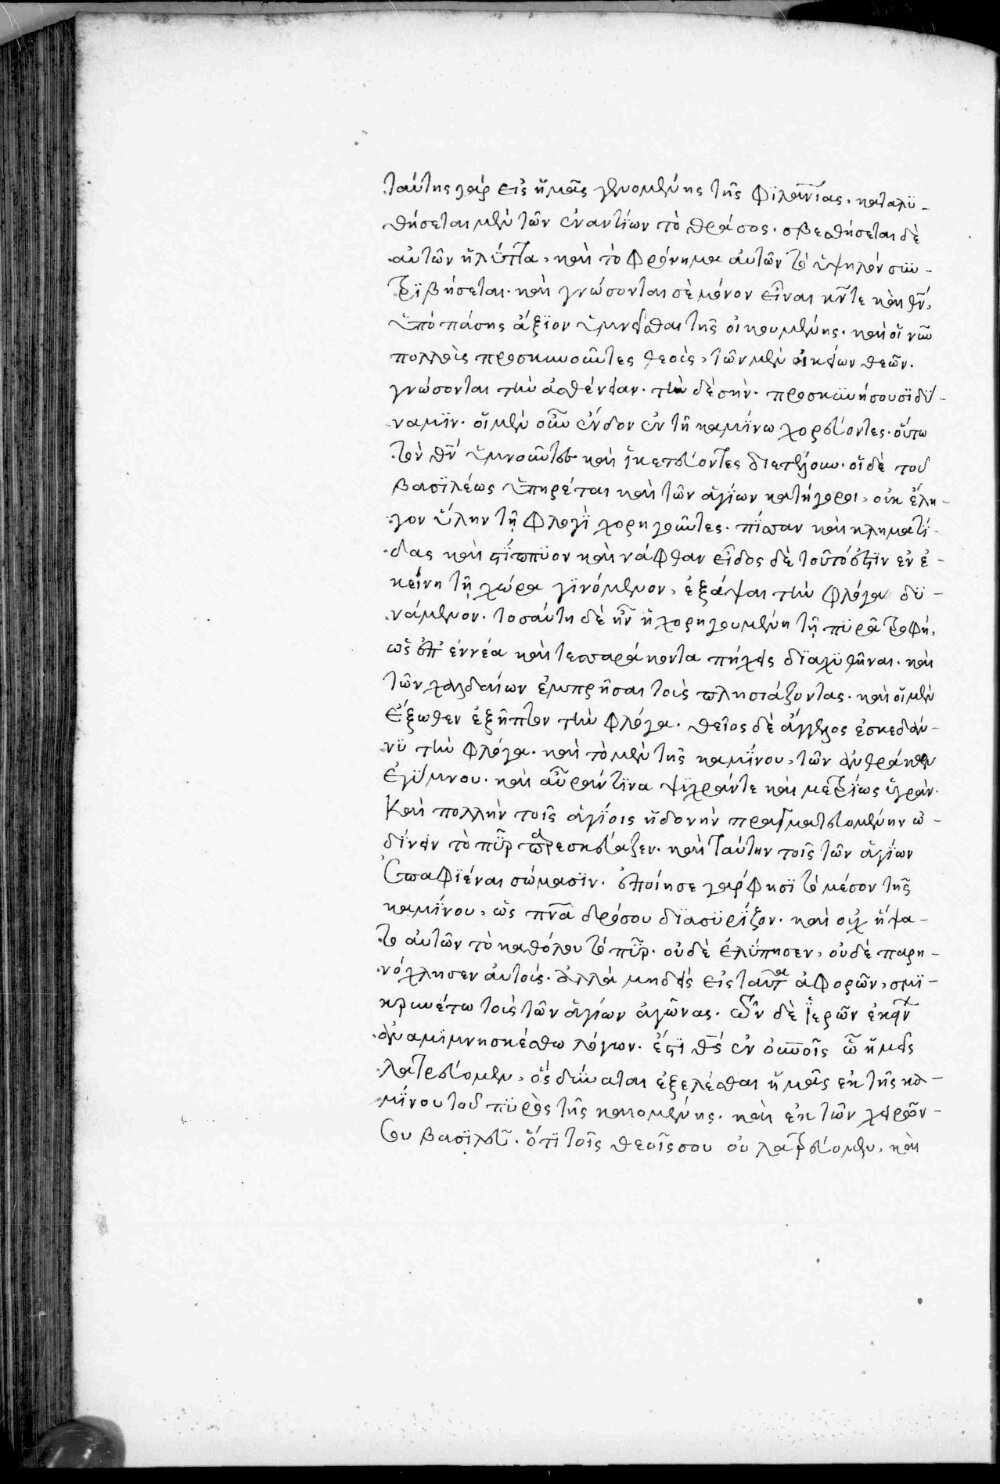 ταύτης γὰρ εἰς ἡμᾶς γενομένης τῆς φιλανίας, καταλϋ-
θήσεται μὲν τῶν ἐναντίων τὸ θράσος· σβεσθήσεται δὲ
αὐτῶν ἡ λύττα, καὶ τὸ φρόνημα αὐτῶν τὸ ὑψηλὸν συν-
τρϊβήσεται· καὶ γνώσονταί σε μόνον εἶναι κν̄τε καὶ θν̄,
ὑπὸ πάσης ἄξϊον ὑμνεῖσθαι τῆς οἰκουμένης· καὶ οἱ νῦν
πολλοῖς προσκυνοῦντες θεοῖς, τῶν μὲν οἰκείων θεῶν·
γνώσονται τὴν ἀσθένειαν· τὴν δὲ σὴν· προσκυνήσουσϊ δύ-
ναμϊν· οἱ μὲν οὖν ἔνδον ἐν τῇ καμίνω χορεύοντες· οὕτω
τὸν θν̄ ὑμνοῦντες καὶ ἱκετεύοντες διετέλουν· οἱ δὲ τοῦ
βασϊλέως ὑπηρέται καὶ τῶν ἁγίων κατήγοροι, οὐκ ἔλη-
γον ὕλην τῇ φλογϊ χορηγοῦντες· πίσσαν καὶ κληματί-
δας καὶ στίππϋον καὶ νάφθαν εἶδος δὲ τοῦτό ἐστϊν ἐν ἐ-
κείνη τῇ χώρα γϊνόμενον, ἐξάψαι τὴν φλόγα δϋ-
νάμενον· τοσαύτη δὲ ἦν ἡ χορηγουμένη τῇ πϋρᾶ τροφή,
ὡς ἐπ' ἐννέα καὶ τεσσαράκοντα πήχεις δϊαχϋθῆναι· καὶ
τῶν χαλδαίων ἐμπρῆσαι τοὺς πλησιάζοντας· καὶ οἱ μὲν
ἔξωθεν ἐξῆπτον τὴν φλόγα· θεῖος δὲ ἄγγελος ἐσκεδάν-
νϋ τὴν φλόγα· καὶ τὸ μὲν τῆς καμίνου, τῶν ἀνθράκων
ἐγύμνου· καὶ αὖραν τϊνα ψϋχράν τε καὶ μετρίως ὑγράν·
καὶ πολλὴν τοῖς ἁγίοις ἡδονὴν πραγματευομένην ὠ-
δίνειν τὸ πῦρ παρεσκεύαζεν· καὶ ταύτην τοῖς τῶν ἁγίων
ἐπαφϊέναι σώμασϊν· ἐποίησε γάρ φησϊ τὸ μέσον τῆς
καμίνου, ὡς πνᾶ δρόσου δϊασϋρίζον· καὶ οὐχ ἥψα-
το αὐτῶν τὸ καθόλου τὸ πῦρ· οὐδὲ ἐλύπησεν, οὐδὲ παρη-
νόχλησεν αὐτούς· ἀλλὰ μηδεὶς εἰς ταῦτα ἀφορῶν, σμϊ-
κρυνέτω τοὺς τῶν ἁγίων ἀγῶνας· τῶν δὲ ἱερῶν ἐκείνων
ἀναμιμνησκέσθω λόγων· ἔστϊ θς̄ ἐν οὐνοῖς ᾧ ἡμεῖς
λατρεύομεν, ὃς δύναται ἐξελέσθαι ἡμᾶς ἐκ τῆς κα-
μίνου τοῦ πϋρὸς τῆς καιομένης· καὶ ἐκ τῶν χειρῶν
σου βασϊλεῦ· ὅτϊ τοῖς θεοῖς σου οὐ λατρεύομεν, καὶ